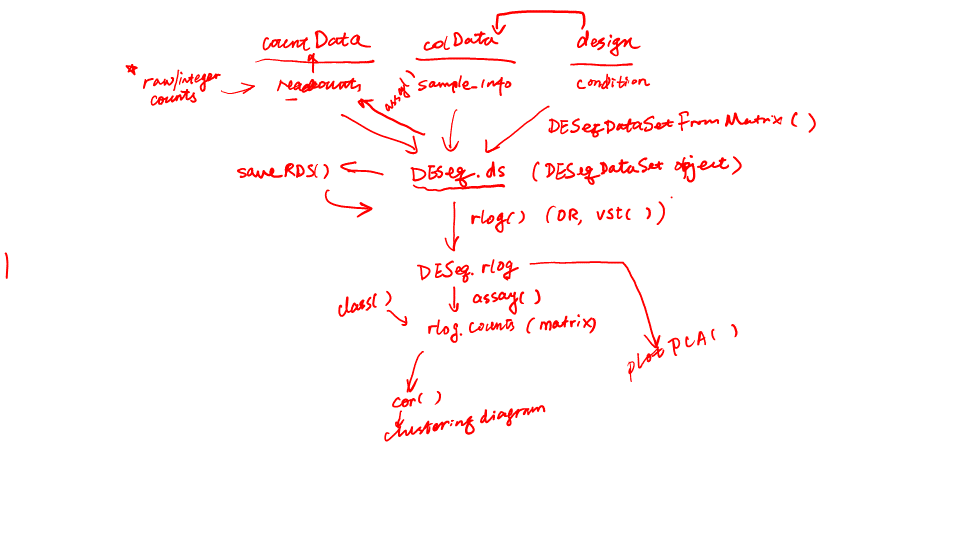 countData colData design
* raw/integer counts
readcounts
assay()
sample_info
condition
DESeqDataSetFromMatrix()
saveRDS()
DESeq.ds (DESeqDataSet object)
rlog() (OR, vst())
DESeq.rlog
assay()
class()
rlog.counts (matrix)
plotPCA()
cor()
clustering diagram